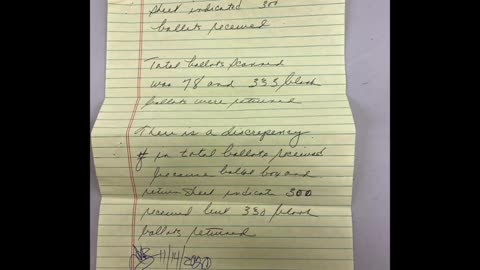 sheet indicated 300
ballots received
Total ballots scanned
was 78 and 333 blank
ballots were returned
There is a discrepency
# in total ballots received
because ballot box and
return sheet indicate 300
received but 330 blank
ballots returned
11/14/20